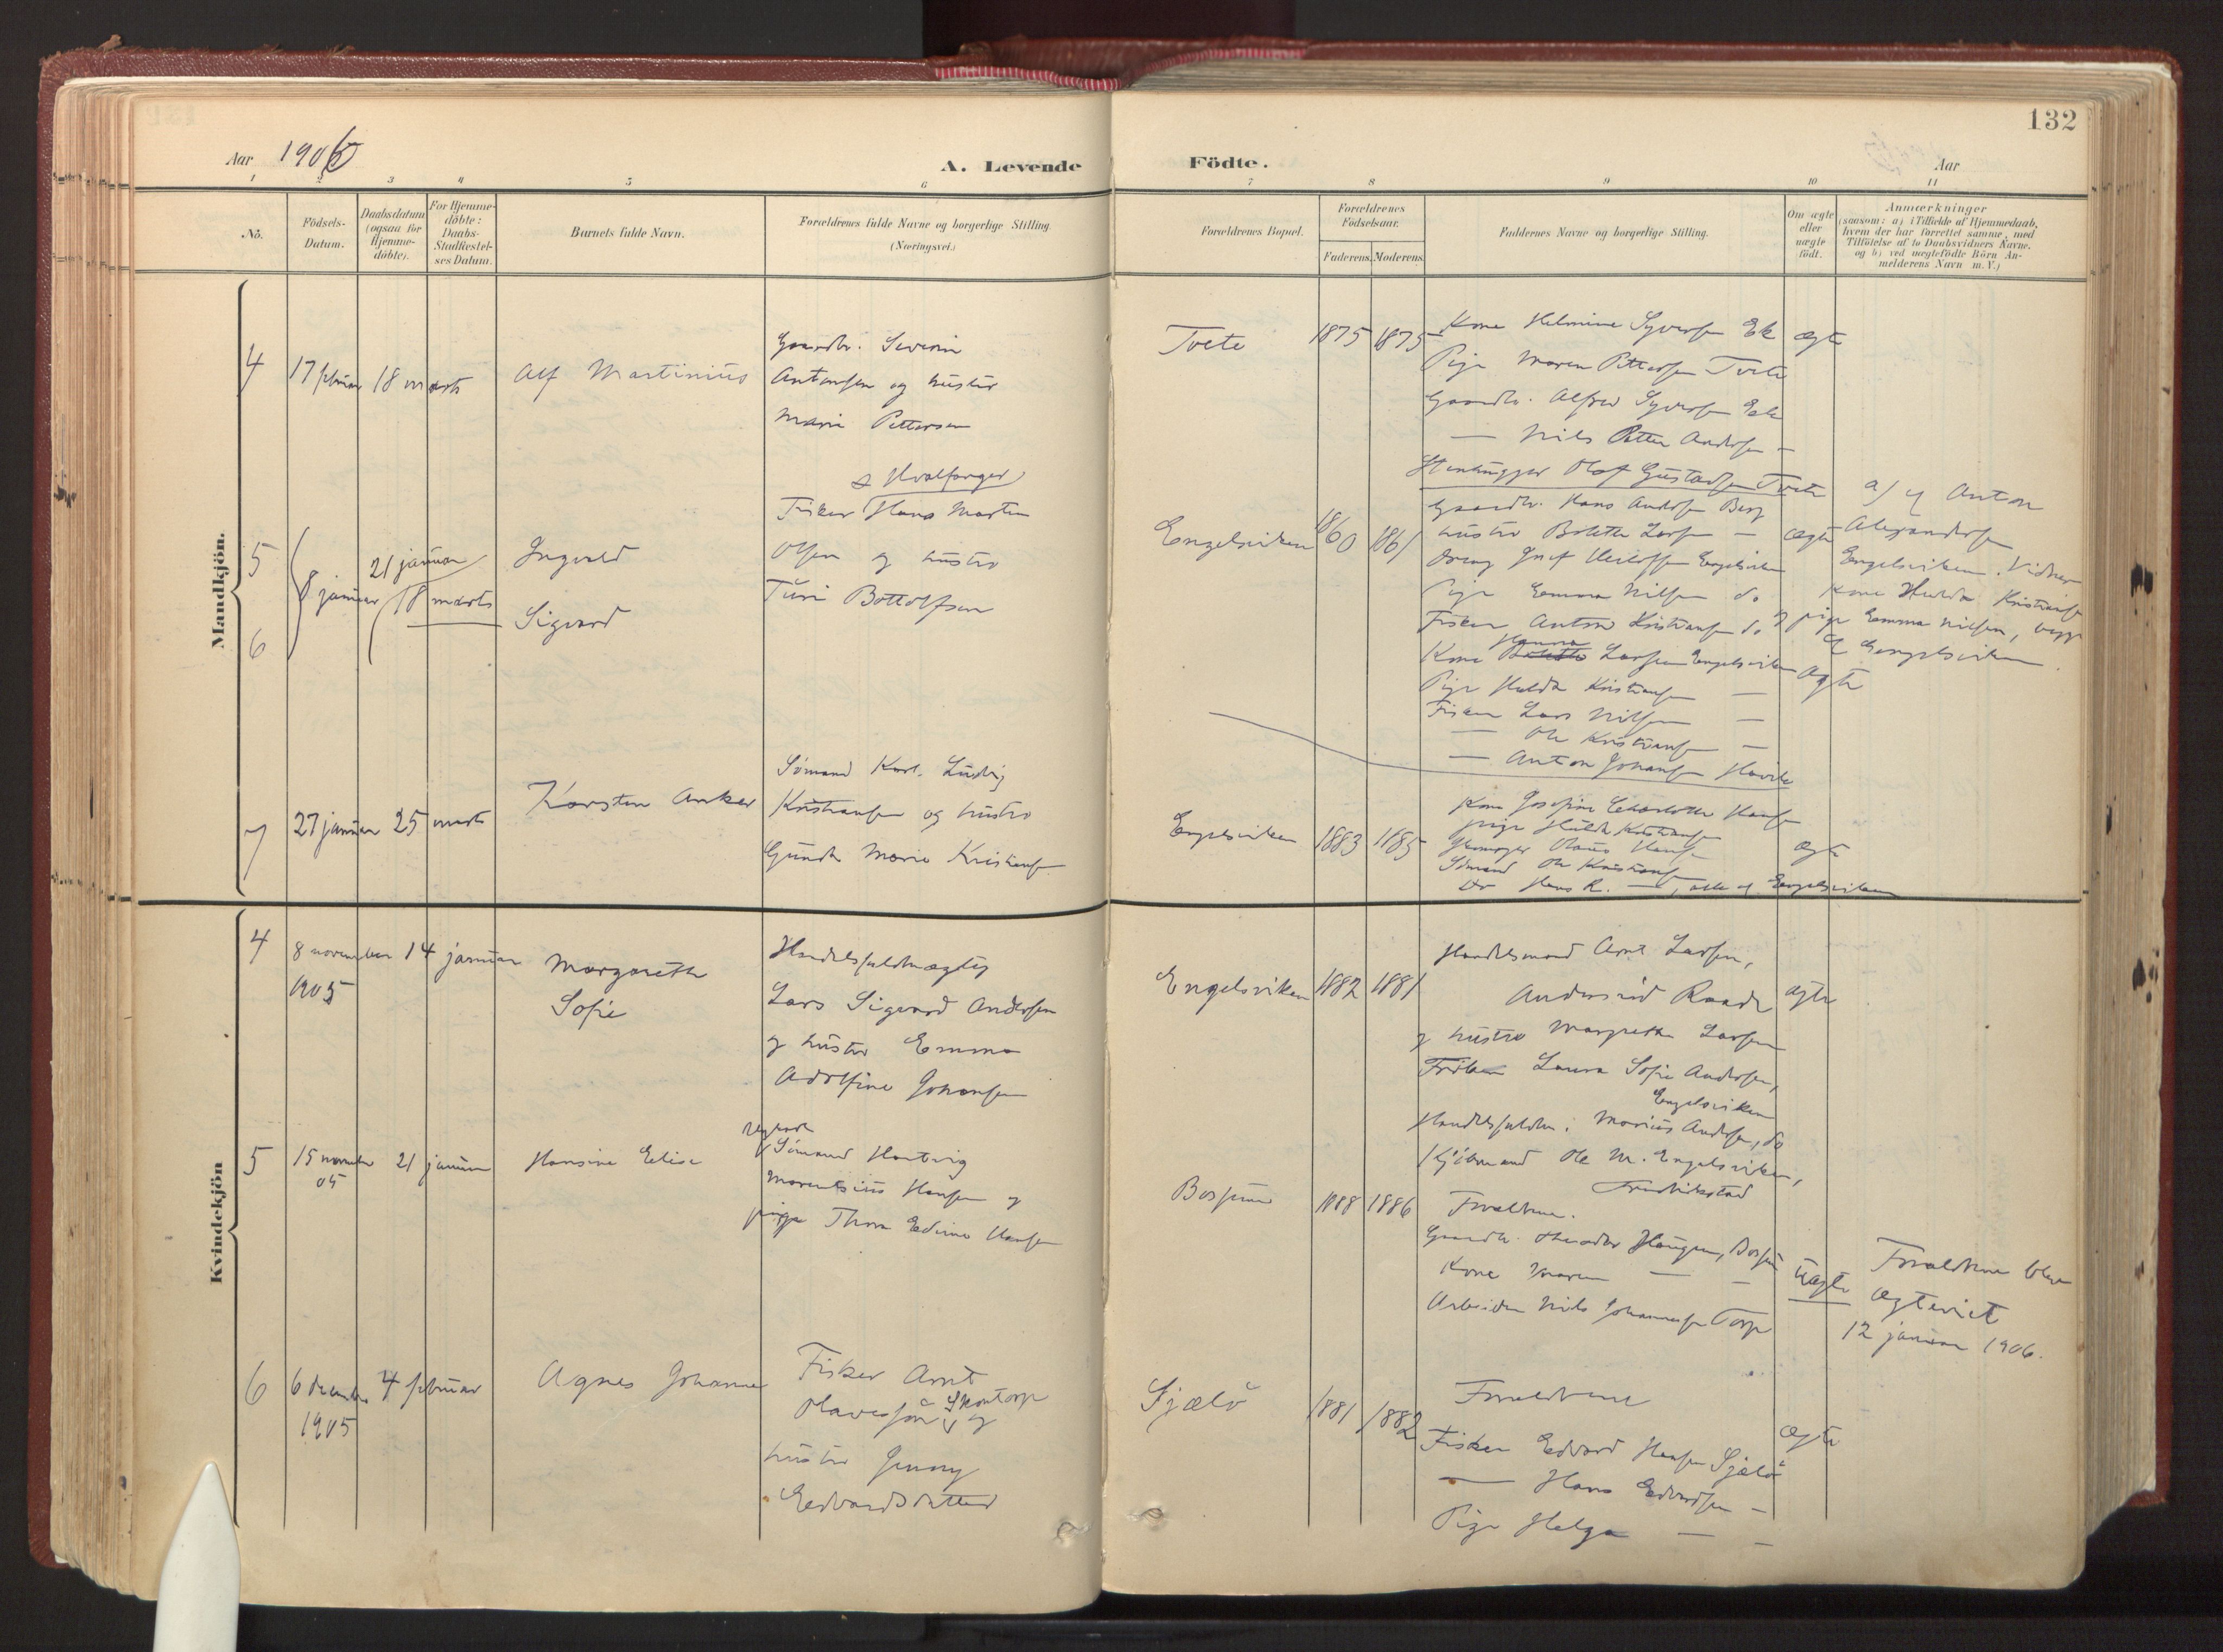 132
Aar 1906
A. Levende
Födte.
Aar
1 2 3 4 5 6 7 8 9 10 11
No.
Födsels-
Datum.
Daabsdatum
(ogsaa for
Hjemme-
döbte).
For Hjemme-
döbte:
Daabs-
Stadfæstel-
ses Datum.
Barnets fulde Navn.
Forældrenes fulde Navne og borgerlige Stilling
(Næringsvei.)
Forældrenes Bopæl.
Forældrenes
Födselsaar.
Faderens. Moderens.
Faddernes Navne og borgerlige Stilling.
Om ægte
eller
uægte
födt.
Anmærkninger
(saasom: a) i Tilfælde af Hjemmedaab,
hvem der har forrettet samme, med
Tilföielse af to Daabsvidners Navne,
og b) ved uægtefödte Börn An-
melderens Navn m. V.)
Mandkjön.
4
17 februar
18 marts
Alf Martinius
Gaardbr. Severin
Antonsen og hustru
Marie Pettersen
Tvete
1875
1875
Kone Helmine Syversen Ek
Pige Maren Pettersen Tvete
Gaardbr. Alfred Syversen Ek
— Nils Petter Andersen —
Stenhugger Olaf Gustavsen Tvete
ægte
5
6
8 januar
21 januar
18 marts
Ingvald
Sigvard
& Hvalfanger
Fisker Hans Martin
Olsen og hustru
Turi Bottolfsen
Engelsviken
1860
1861
Gaardbr. Hans Andersen Berg
hustru Bolette Larsen —
Pige Emma Nilsen do
Fisker Anton Kristiansen do
Kone Hanna Larsen Engelsviken
Pige Hulda Kristiansen —
Fisker Lars Nilsen —
— Ole Kristiansen —
— Anton Johansen
ægte
ægte
a) af Anton
Alexandersen
Engelsviken. Vidner
Kone Hulda Kristiansen
og pige Emma Nilsen, begge
af Engelsviken.
7
27 januar
25 marts
Karsten Anker
Sömand Karl Ludvig
Kristiansen og hustru
Gunda Marie Kristiansen
Engelsviken
1883
1885
Kone Josefine Charlotte Hansen
pige Hulda Kristiansen
Skomager Olaus Hansen
Sömand Ole Kristiansen
do Hans R. —, alle af Engelsviken
ægte
Kvindekjön
4
8 november
1905
14 januar
Margarethe
Sofie
Handelsfuldmægtig
Lars Sigvard Andersen
og hustru Emma
Adolfine Johansen
Engelsviken
1882
1881
Handelsmand Arnt Larsen,
Raade
og hustru Margrethe Larsen
Laura Sofie Andersen,
Engelsviken
Handelsfuldm. Marius Andersen, do
Kjöbmand Ole M. Engelsviken,
Fredrikstad
ægte
5
15 november
05
21 januar
Hansine Elise
ugivt
Sömand Hartvig
Hansen og
pige Thora Edine Hansen
1888
1886
Forældrene.
Gaardbr. Theodor
Kone Maren — —
Arbeider Nils Johannesen Torp
uægte
Forældrene blev
ægteviet
12 januar 1906.
6
6 december
1905
4 februar
Agnes Johanne
Fisker Arnt
Olavesön
og
hustru Jenny
Edvardsdatter
Sjælö
1881
1882
Forældrene
Fisker Edvard Hansen Sjælö
— Hans Edvardsen —
Pige Helga — —
ægte